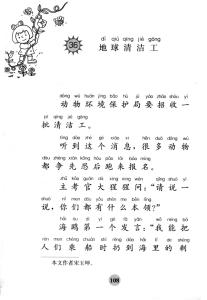 36
dì qiú qīng jié gōng
地球清洁工
dòng wù huán jìng bǎo hù jú yào zhāo shōu yī
动物环境保护局要招收一
pī qīng jié gōng
批清洁工。
tīng dào zhè ge xiāo xi hěn duō dòng wù
听到这个消息，很多动物
dōu zhēng xiān kǒng hòu pǎo lái bào míng
都争先恐后跑来报名。
zhǔ kǎo guān dà xīng xing wèn qǐng shuō yi
主考官大猩猩问：“请说一
shuō nǐ men dōu yǒu shén me běn lǐng
说，你们都有什么本领？”
hǎi ōu dì yī gè fā yán wǒ néng bǎ
海鸥第一个发言：“我能把
rén men chéng chuán shí rēng dào hǎi lǐ de shèng
人们乘船时扔到海里的剩
本文作者宋玉晖。
108